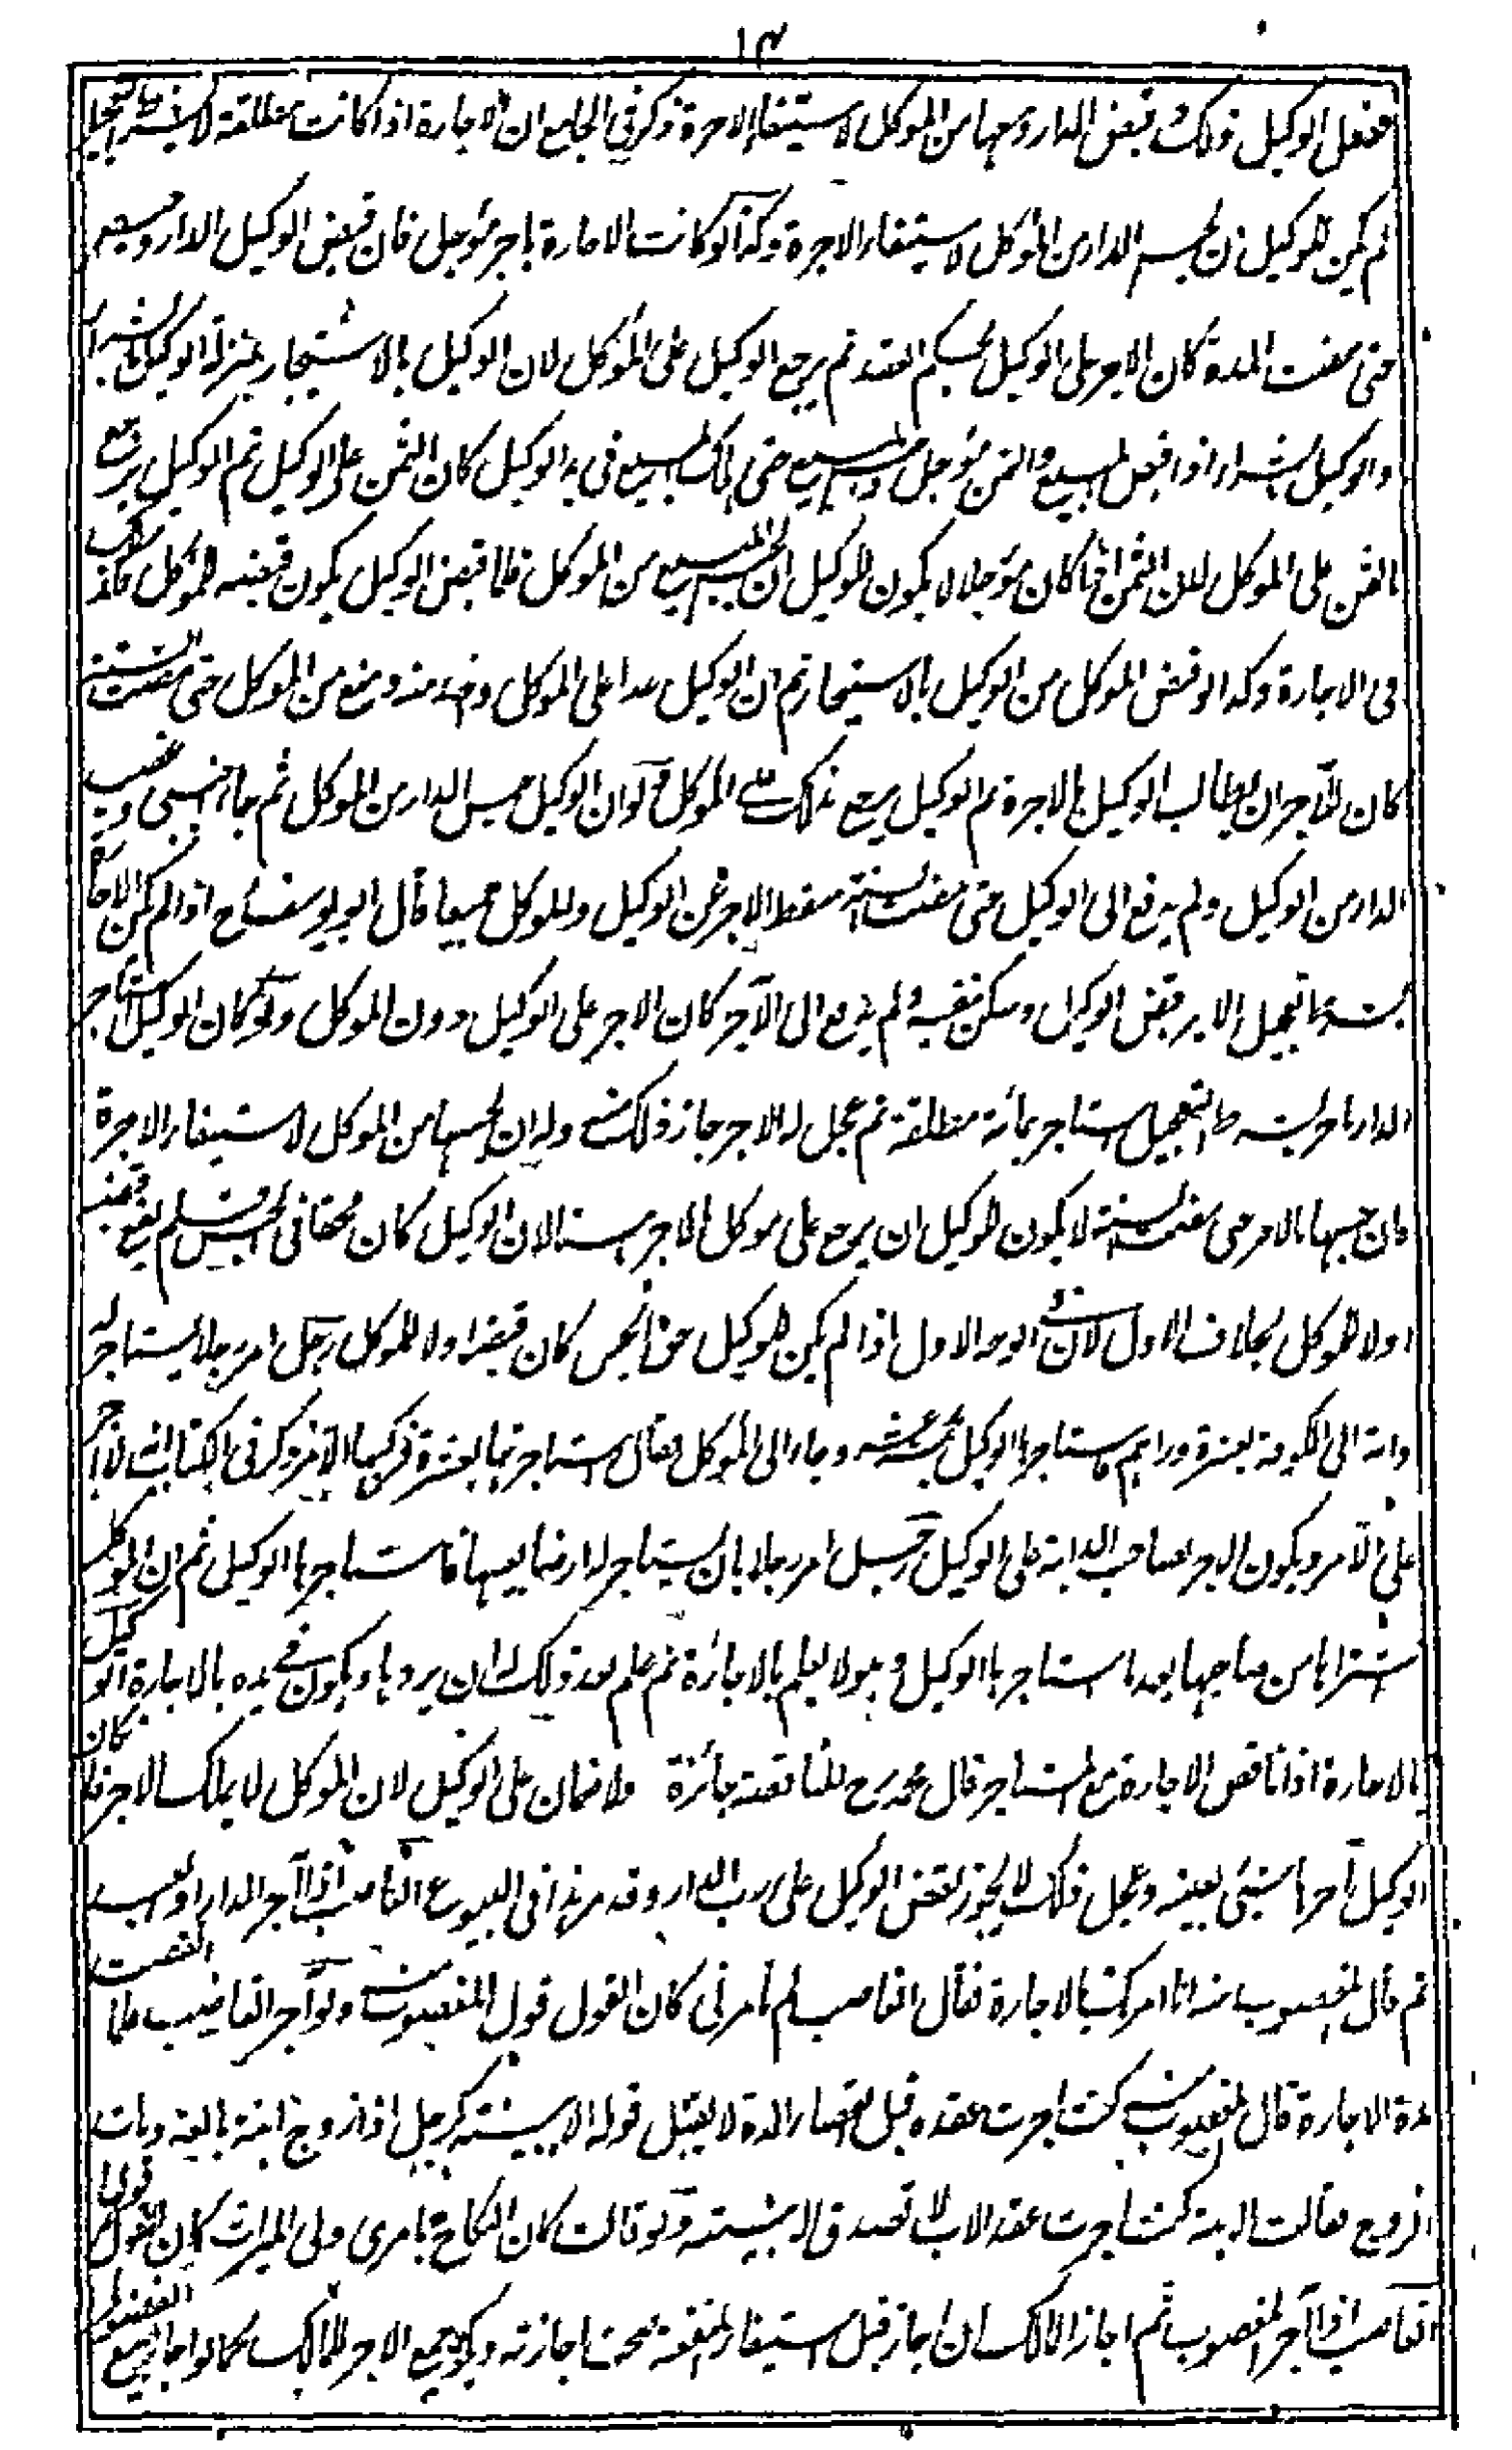 ١٣
ففعل الوكيل ذلك وقبض الدار وحبسها من الموكل لاستيفاء الاجرة ذكر في الجامع ان الاجارة اذا كانت مطلقة لا يشترط التعجيل
لم يكن للوكيل ان يحبس الدار من الموكل لاستيفاء الاجرة وكذا لو كانت الاجارة باجر مؤجل فان قبض الوكيل الدار وحبسها
حتى مضت المدة كان الاجر على الوكيل بحكم العقد ثم يرجع الوكيل على الموكل لان الوكيل بالاستيجار بمنزلة الوكيل بالشراء
والوكيل بالشراء اذا قبض المبيع والثمن مؤجل وحبس المبيع حتى هلك المبيع في يد الوكيل كان الثمن على الوكيل ثم الوكيل يرجع
بالثمن على الموكل لان الثمن اذا كان مؤجلا لا يكون للوكيل ان يحبس المبيع من الموكل فلما قبض الوكيل يكون قبضه للموكل فكذلك
في الاجارة وكذا لو قبض الموكل من الوكيل بالاستيجار ثم ان الوكيل عدا على الموكل واخذه منه ومنع من الموكل حتى مضت السنة
كان للآجر ان يطالب الوكيل بالاجرة ثم الوكيل يرجع بذلك على الموكل ولو ان الوكيل حبس الدار من الموكل ثم جاء اجنبي وغصب
الدار من الوكيل ولم يدفع الى الوكيل حتى مضت السنة سقط الاجر عن الوكيل والموكل جميعا قال ابو يوسف رح اذا لم يكن الاجارة
بشرط تعجيل الاجر وقبض الوكيل وسكن بنفسه ولم يدفع الى الآمر كان الاجر على الوكيل دون الموكل ولو كان الوكيل استاجر
الدار باجر بشرط التعجيل استاجر بمائة مطلقة ثم عجل له الاجر جاز ذلك منه وله ان يحبسها من الموكل لاستيفاء الاجرة
فان حبسها بالاجر حتى مضت السنة لا يكون للوكيل ان يرجع على موكل بالاجر هنا لان الوكيل كان محقا في الحبس فلم يقع قبضه
اولا للموكل بخلاف الاول لان في الوجه الاول اذا لم يكن للوكيل حق الحبس كان قبضه اولا للموكل رجل امر رجلا ليستاجر له
دابة الى الكوفة بعشرة دراهم فاستاجرها الوكيل بخمسة عشر وجاء الى الموكل فقال استاجرتها بعشرة فركبها الآمر ذكر في الكتاب انه لا اجر
على الآمر ويكون الاجر لصاحب الدابة على الوكيل رجل امر رجلا بان يستاجر له ارضا بعينها فاستاجرها الوكيل ثم ان الموكل
اشتراها من صاحبها بعد ما استاجرها الوكيل وهو لا يعلم بالاجارة ثم علم بعد ذلك له ان يردها ويكون في يده بالاجارة الوكيل
بالاجارة اذا ناقض الاجارة مع المستاجر قال محمد رح المناقضة جائزة ولا ضمان على الوكيل لان الموكل لا يملك الاجر فان كان
الوكيل آجرها بشيء بعينه وعجل ذلك لا يجوز نقض الوكيل على رب الدار وقد مر هذا في البيوع الغاصب اذا آجر الدار او العبد
ثم قال المغصوب منه انا امرتك بالاجارة فقال الغاصب لم تامرني كان القول قول المغصوب منه ولو آجر الغاصب فلما انقضت
مدة الاجارة قال المغصوب منه كنت اجزت عقده قبل انقضاء المدة لا يقبل قوله الا ببينة كرجل اذا زوج ابنة بالغة ومات
الزوج فقالت الابنة كنت اجزت عقد الاب لا تصدق الا ببينة ولو قالت كان النكاح بامري ولي الميراث كان القول قولها
الغاصب اذا آجر المغصوب ثم اجاز المالك ان اجاز قبل استيفاء المنفعة صحت اجازته ويكون جميع الاجر للمالك كما لو اجاز بيع الفضولي